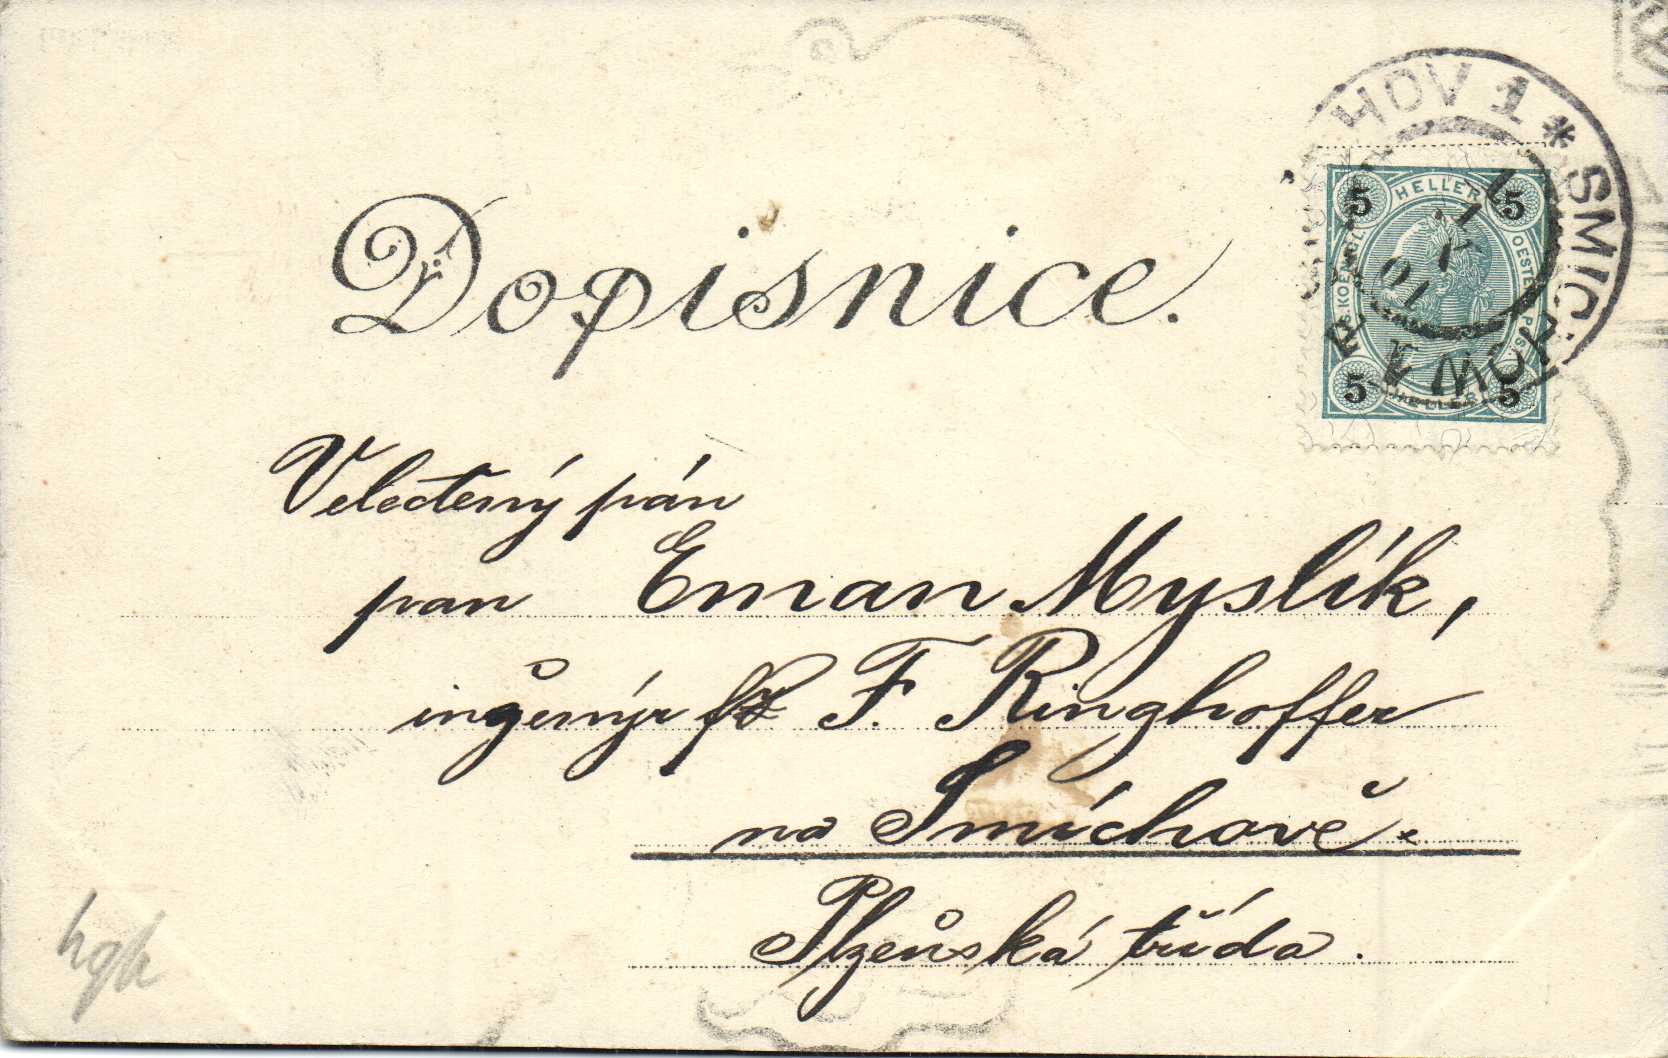 Dopisnice.
HOV 1 * SMIC
5 HELLER 5
5 HELLER 5
Velectený pán
pan Eman Myslík,
inženýr F. Ringhoffer
na Smíchově
Plzeňská třída.
hgh